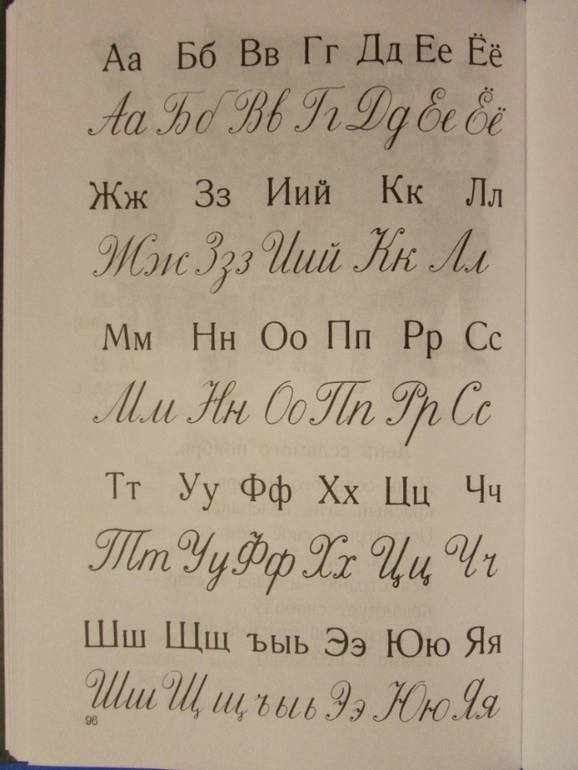 Аа Бб Вв Гг Дд Ее Ёё
Аа Бб Вв Гг Дд Ее Ёё
Жж Зз Иий Кк Лл
Жж Ззз Иий Кк Лл
Мм Нн Оо Пп Рр Сс
Мм Нн Оо Пп Рр Сс
Тт Уу Фф Хх Цц Чч
Тт Уу Фф Хх Цц Чч
Шш Щщ ъыь Ээ Юю Яя
Шш Щщ ъыь Ээ Юю Яя
96